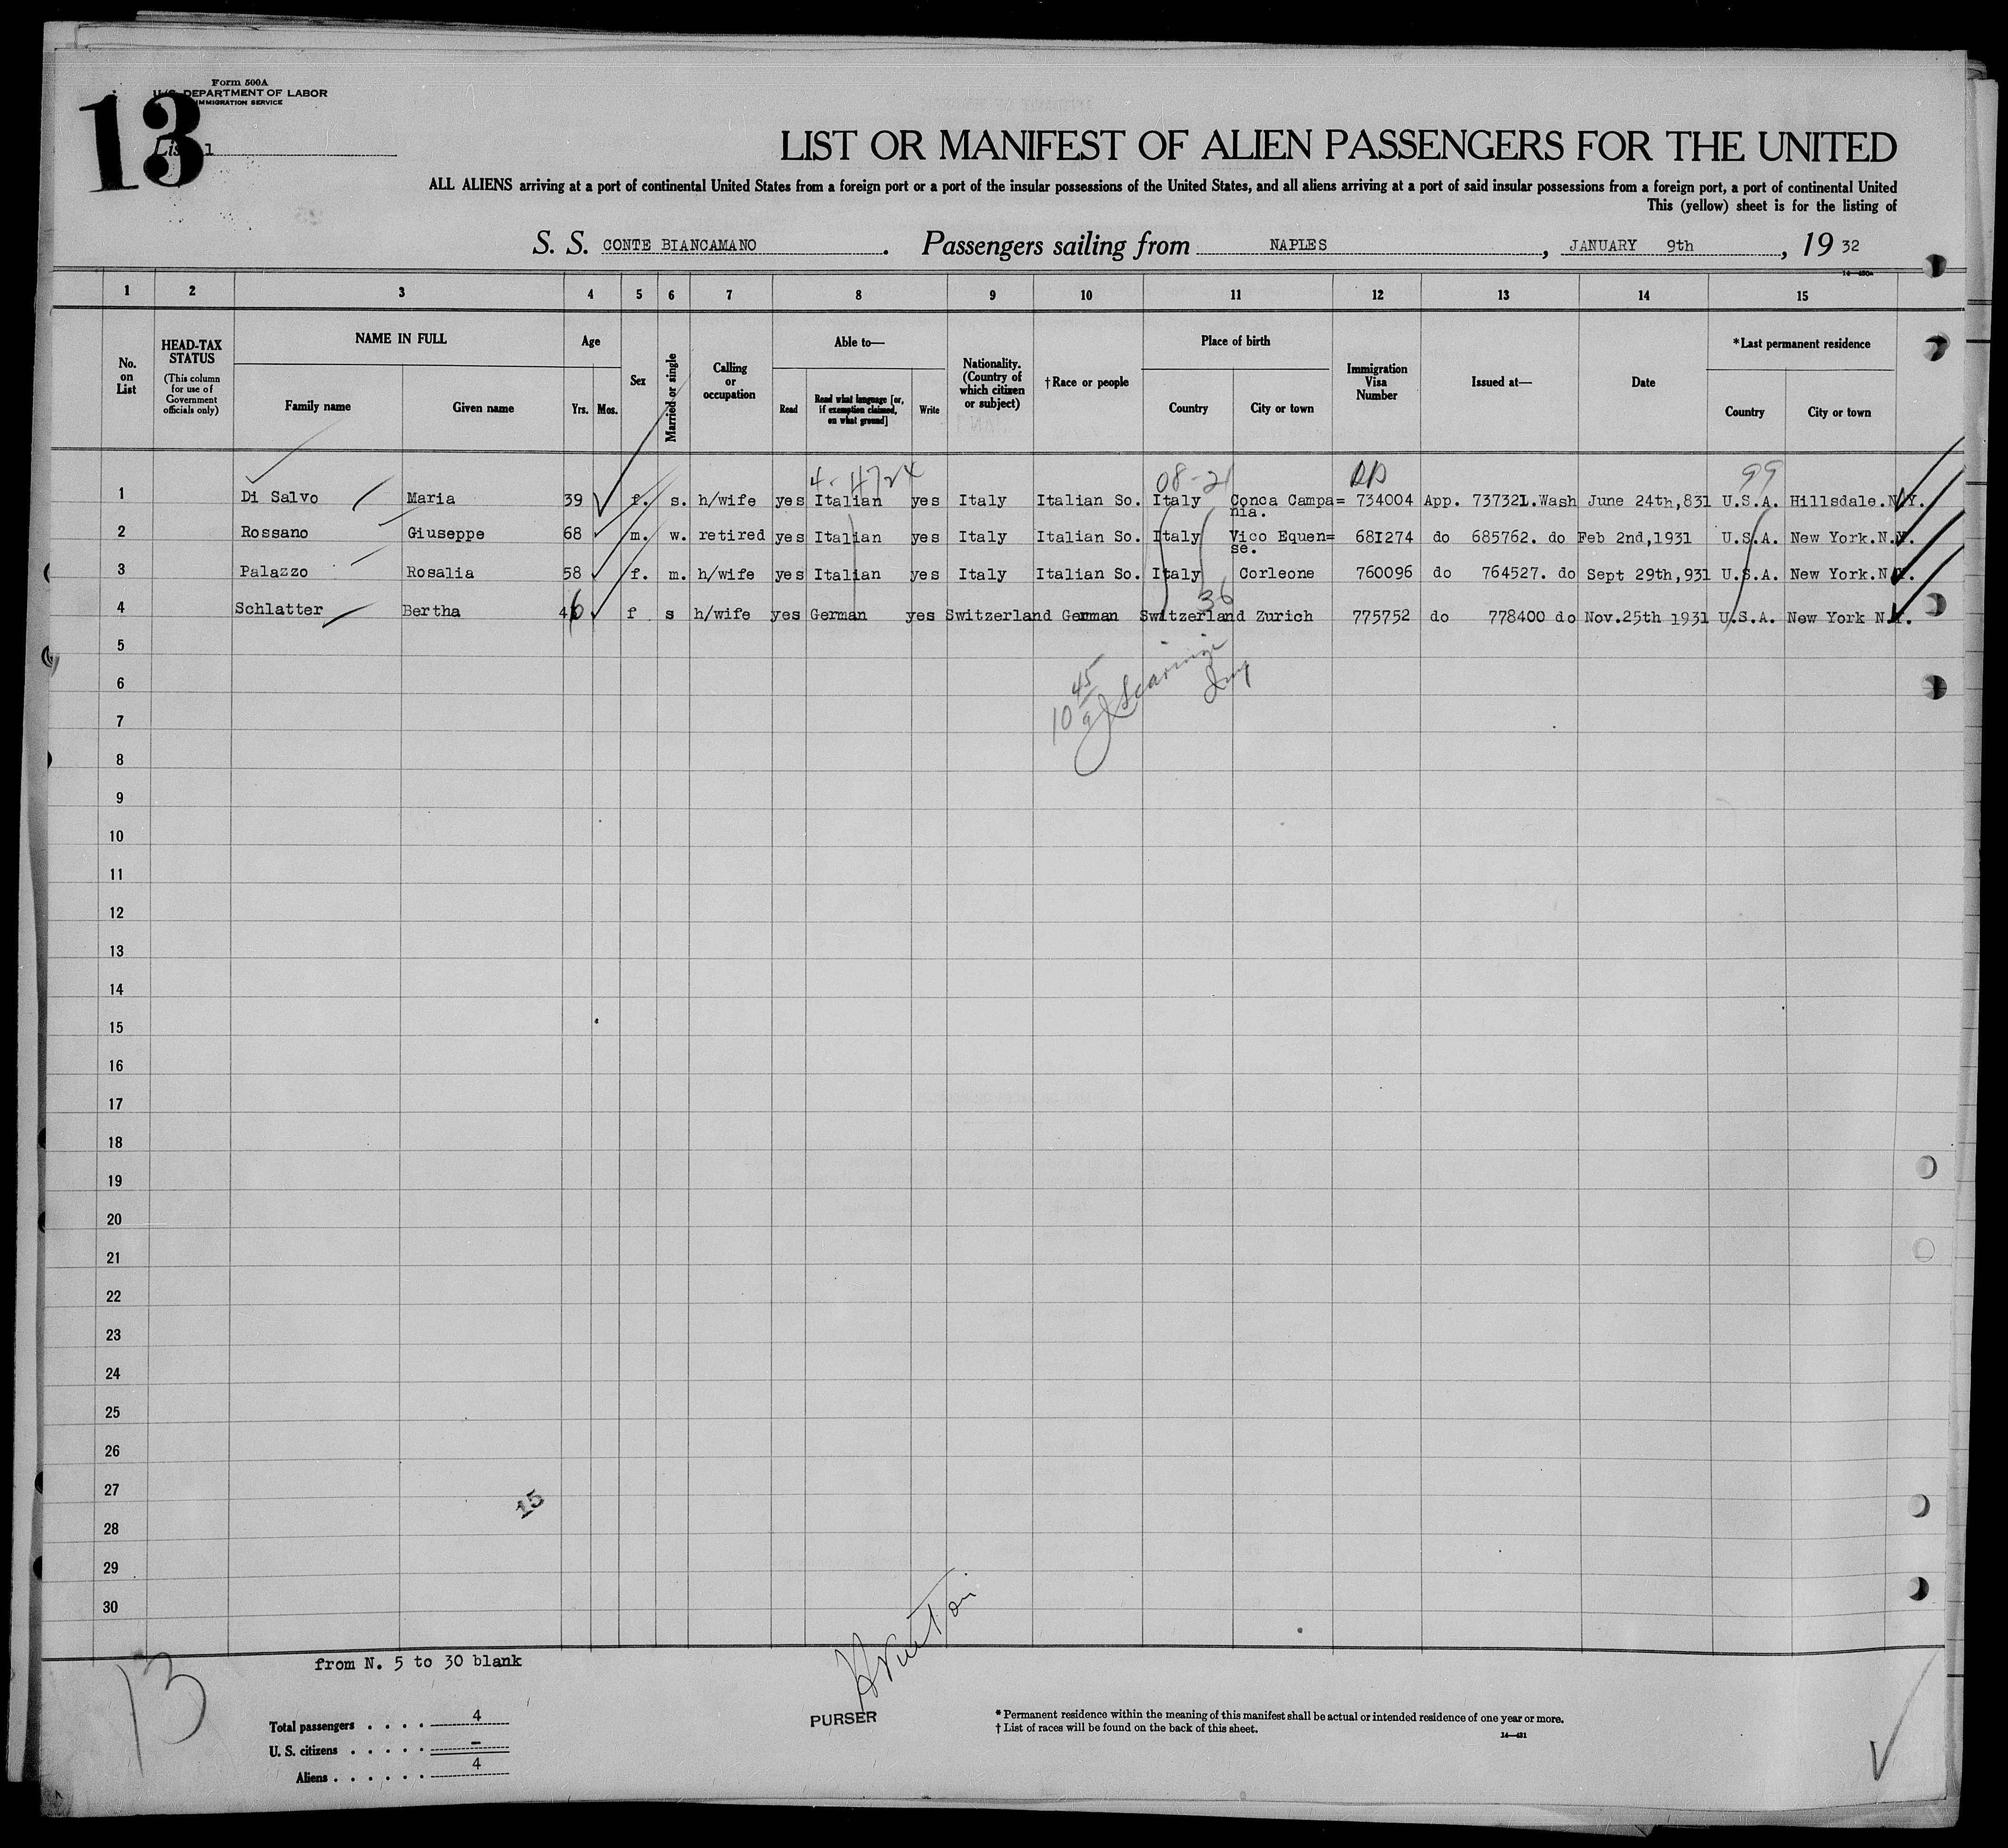 Form 500A
U. S. DEPARTMENT OF LABOR
IMMIGRATION SERVICE
13
List 1
LIST OR MANIFEST OF ALIEN PASSENGERS FOR THE UNITED
ALL ALIENS arriving at a port of continental United States from a foreign port or a port of the insular possessions of the United States, and all aliens arriving at a port of said insular possessions from a foreign port, a port of continental United
This (yellow) sheet is for the listing of
S. S. CONTE BIANCAMANO. Passengers sailing from NAPLES, JANUARY 9th, 19 32
1 2 3 4 5 6 7 8 9 10 11 12 13 14 15
No. on List
HEAD-TAX STATUS (This column for use of Government officials only)
NAME IN FULL Family name Given name
Age Yrs. Mos.
Sex
Married or single
Calling or occupation
Able to— Read Read what language [or, if exemption claimed, on what ground] Write
Nationality. (Country of which citizen or subject)
†Race or people
Place of birth Country City or town
Immigration Visa Number
Issued at—
Date
*Last permanent residence Country City or town
08-21 99
1 Di Salvo Maria 39 f. s. h/wife yes Italian yes Italy Italian So. Italy Conca Campa= 734004 App. 737321.Wash June 24th,831 U.S.A. Hillsdale.N.Y.
nia.
2 Rossano Giuseppe 68 m. w. retired yes Italian yes Italy Italian So. Italy Vico Equen= 681274 do 685762. do Feb 2nd,1931 U.S.A. New York.N.Y.
se.
3 Palazzo Rosalia 58 f. m. h/wife yes Italian yes Italy Italian So. Italy Corleone 760096 do 764527. do Sept 29th,931 U.S.A. New York.N.Y.
36
4 Schlatter Bertha 46 f s h/wife yes German yes Switzerland German Switzerland Zurich 775752 do 778400 do Nov.25th 1931 U.S.A. New York N.Y.
5
6
10 45
7
8
9
10
11
12
13
14
15
16
17
18
19
20
21
22
23
24
25
26
27
15
28
29
30
from N. 5 to 30 blank
13
Total passengers . . . . 4
U. S. citizens . . . . . -
Aliens . . . . . . 4
PURSER
* Permanent residence within the meaning of this manifest shall be actual or intended residence of one year or more.
† List of races will be found on the back of this sheet.
14—431